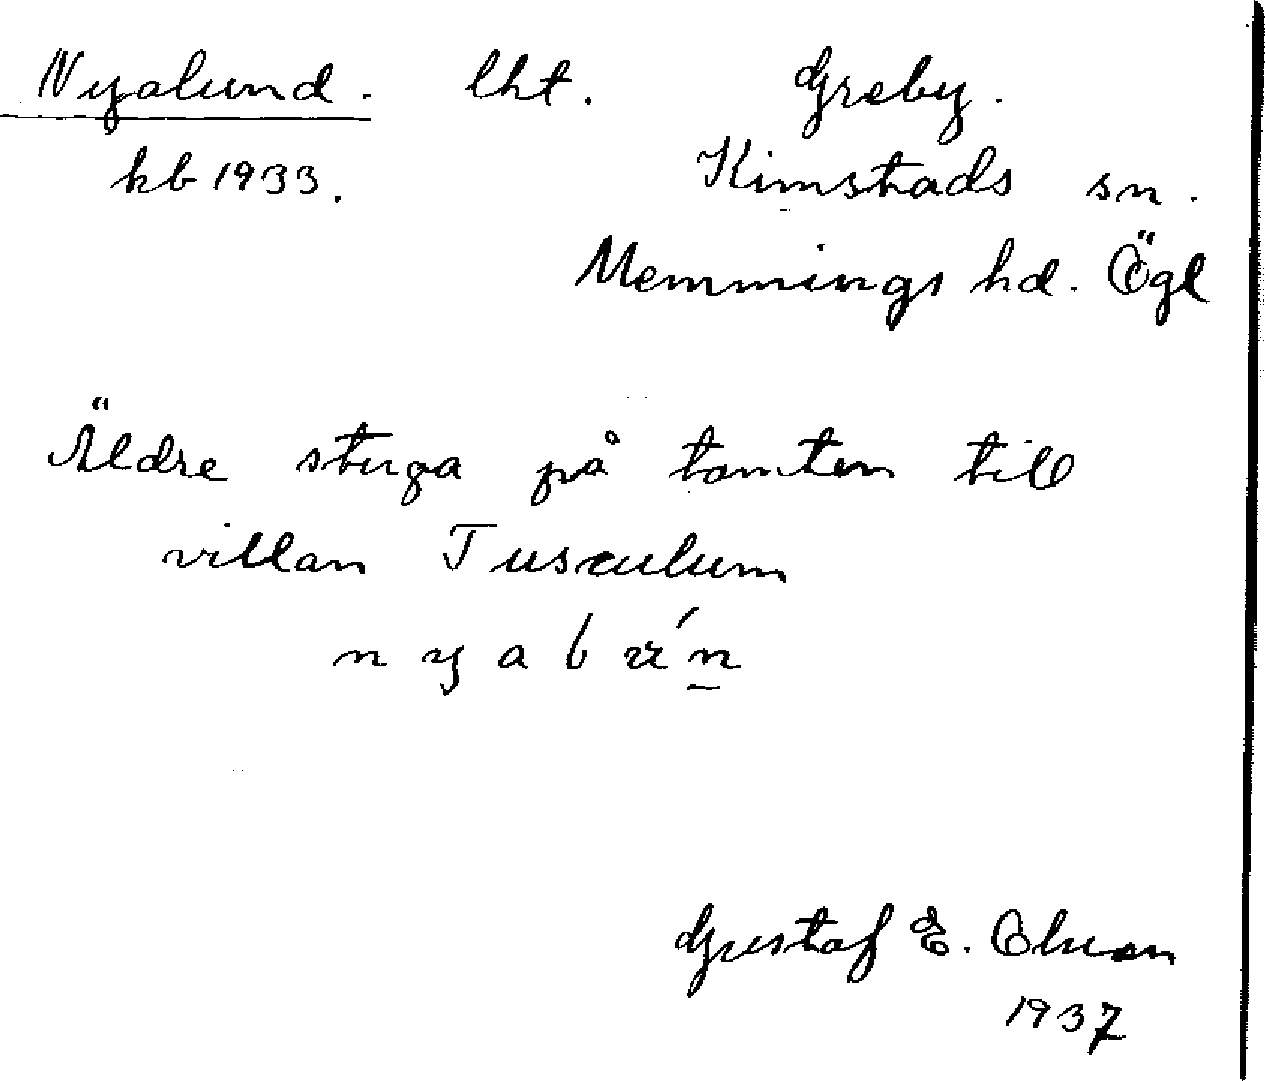 Nyalund. lht. Greby.
kb 1933. Kimstads sn.
Memmings hd. Ögl
Äldre stuga på tomten till
villan Tusculum
Gustaf E.
1937